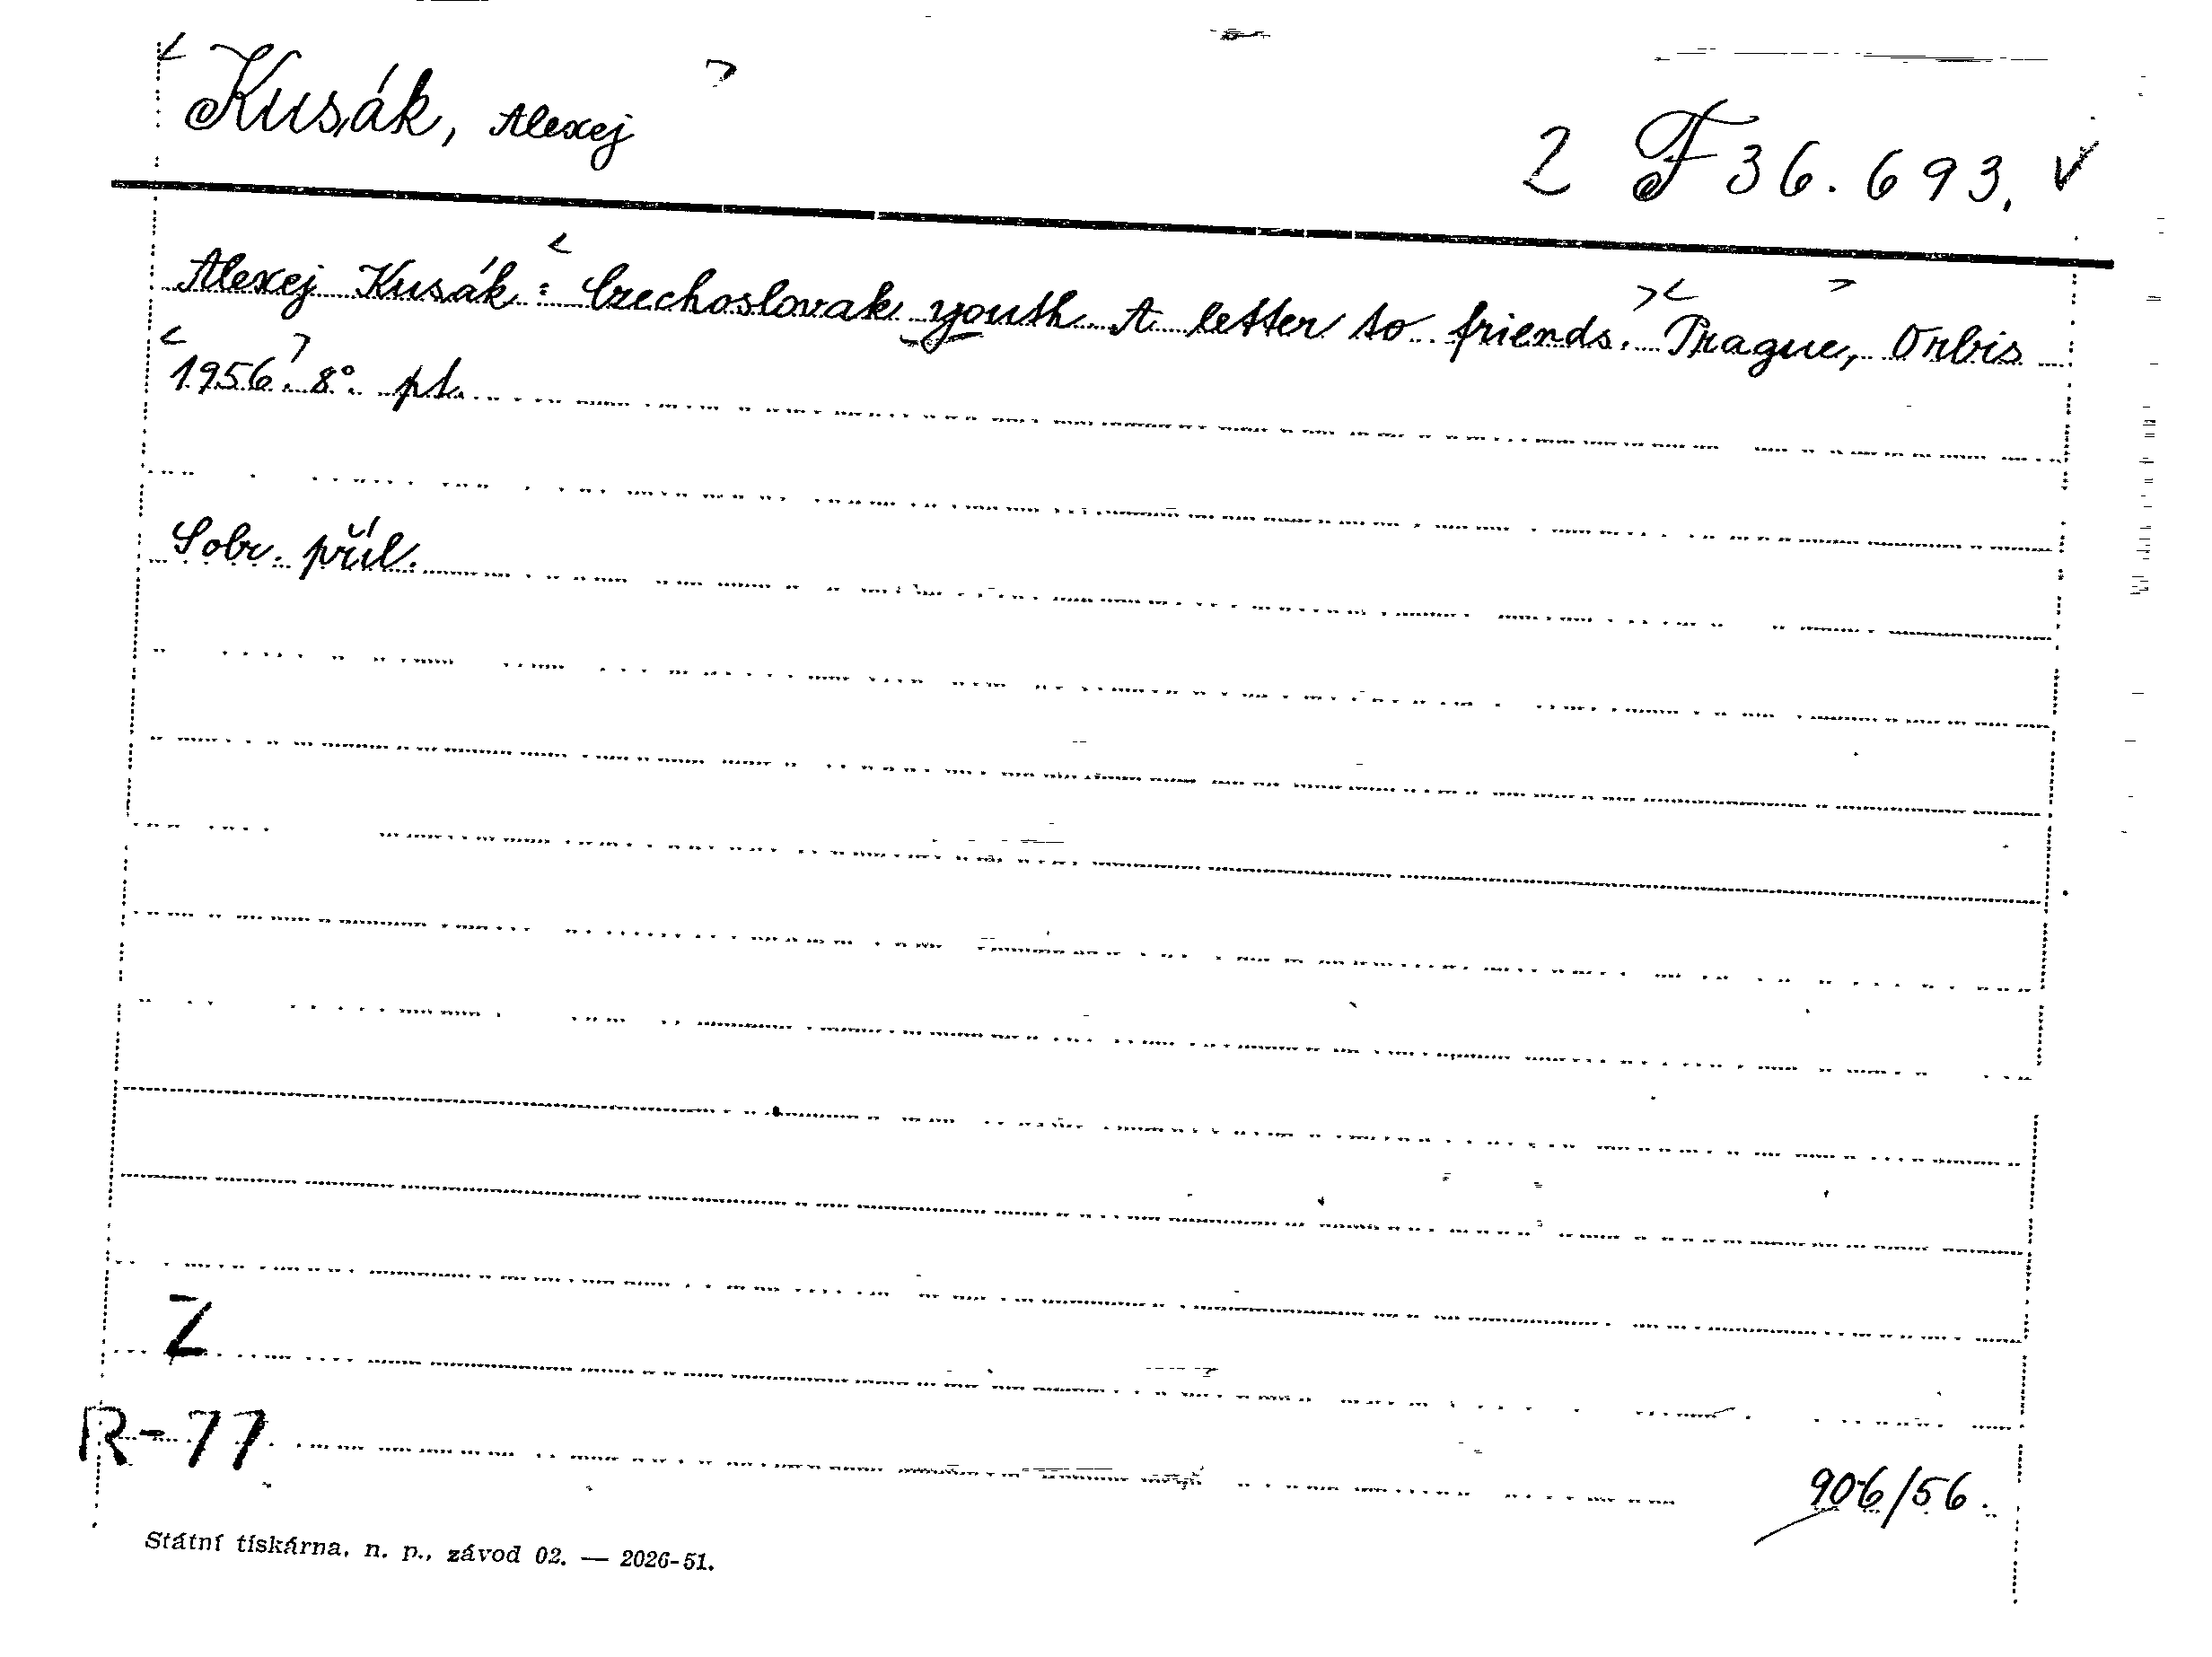 Kusák, Alexej
2 F 36.693. √
Alexej Kusák: Czechoslovak youth. A letter to friends. Prague, Orbis
1956. 8°. pt.
Sobr. příl.
Z
R-77
906/56.
Státní tiskárna, n. p., závod 02. — 2026-51.